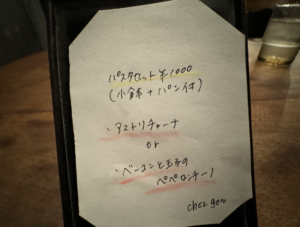 パスタセット ¥1000
(小鉢 + パン付)
・アマトリチャーナ
or
・ベーコンと玉子の
ペペロンチーノ
chez gen